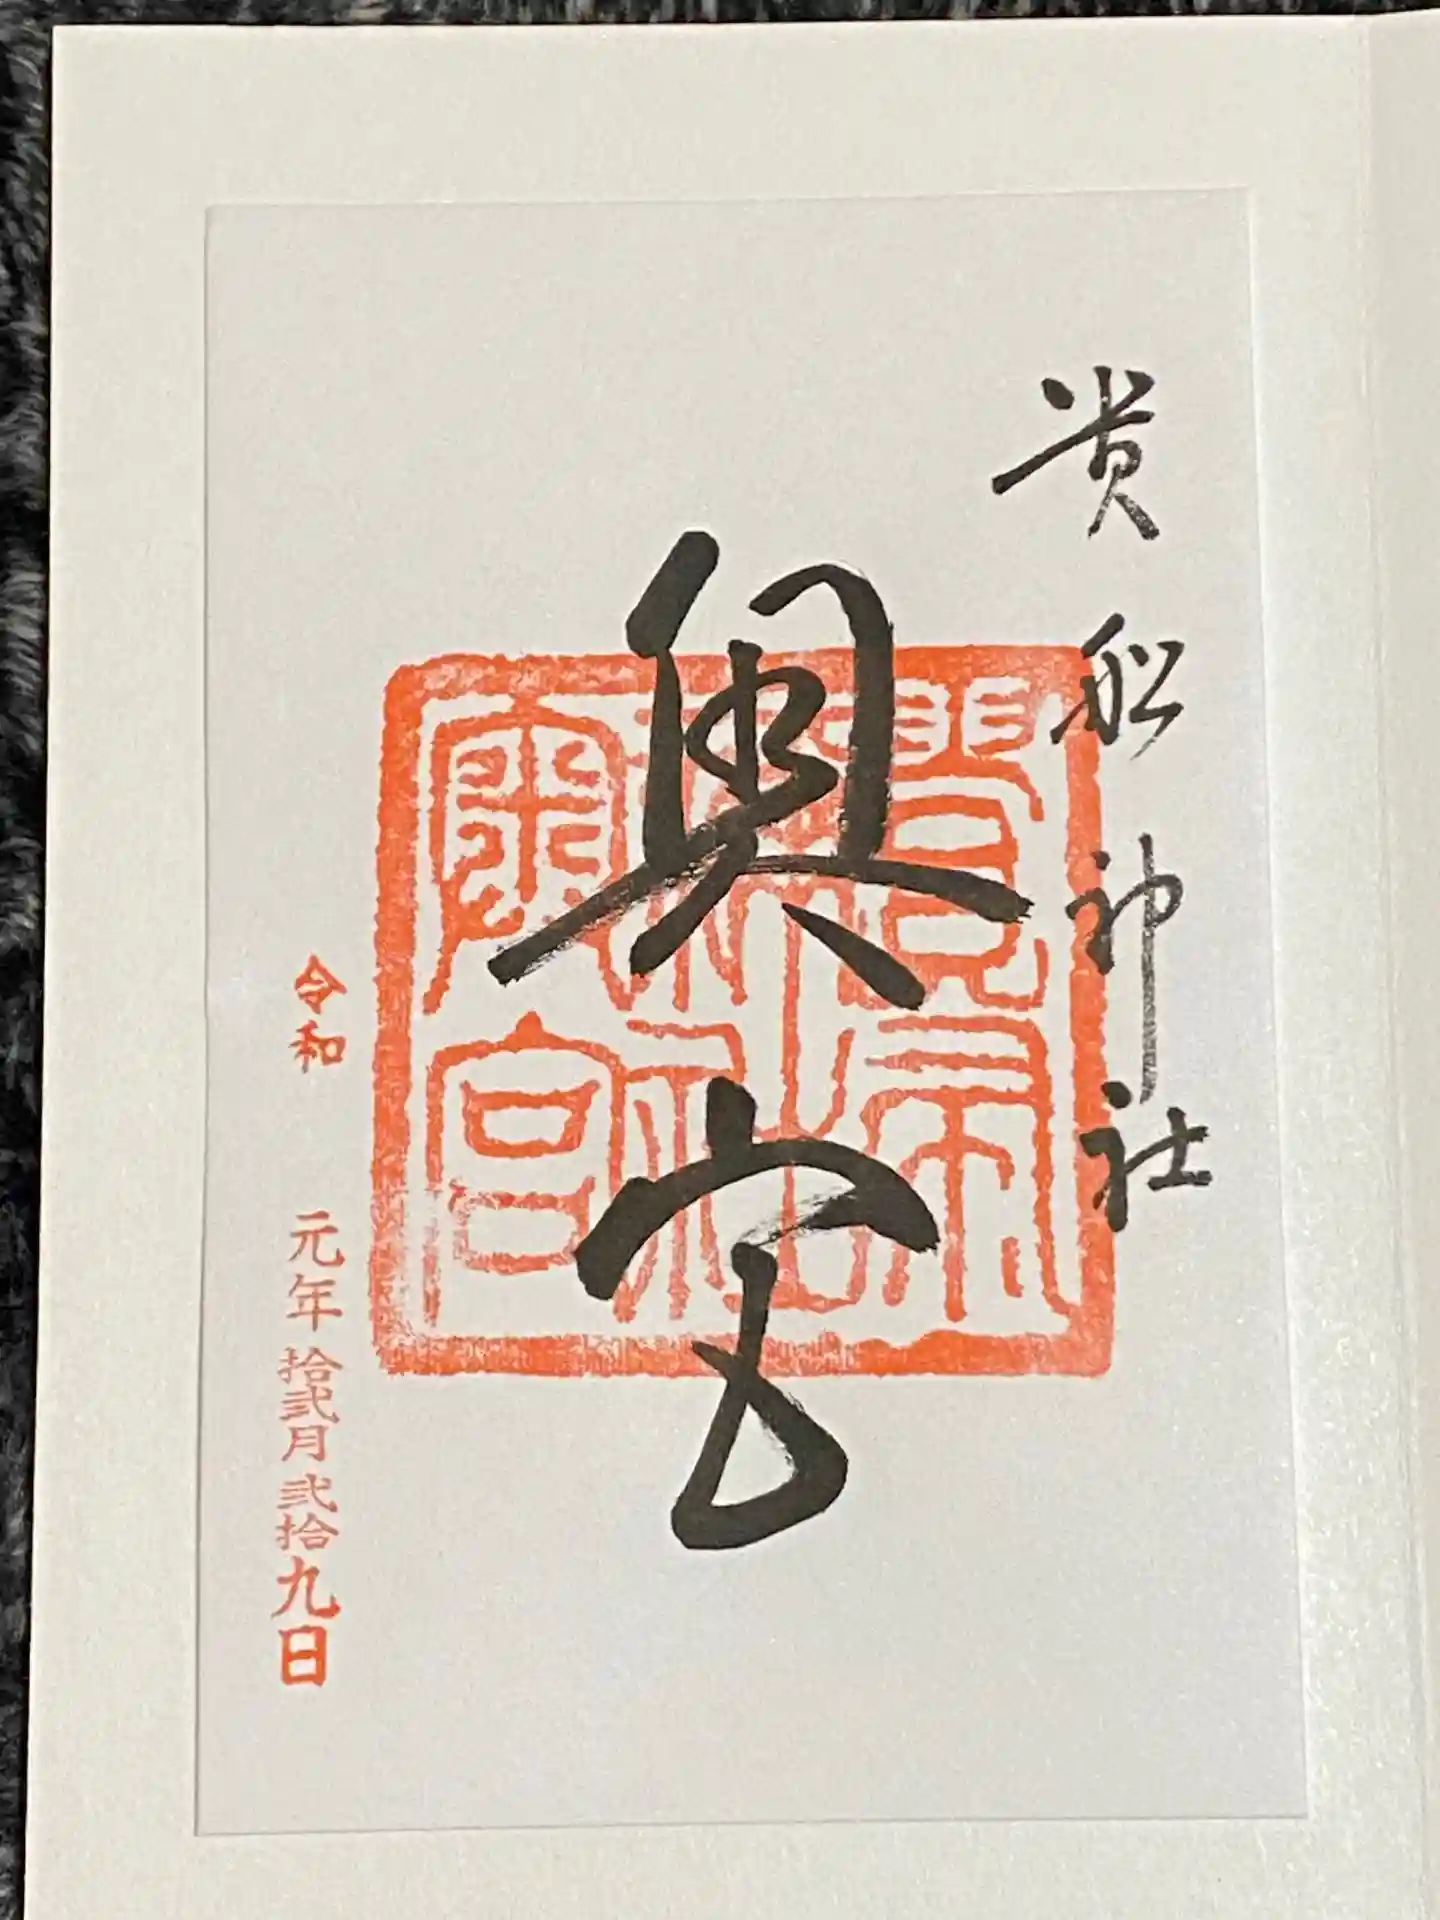 貴船神社
奥宮
令和 元年 拾弐月 弐拾九日